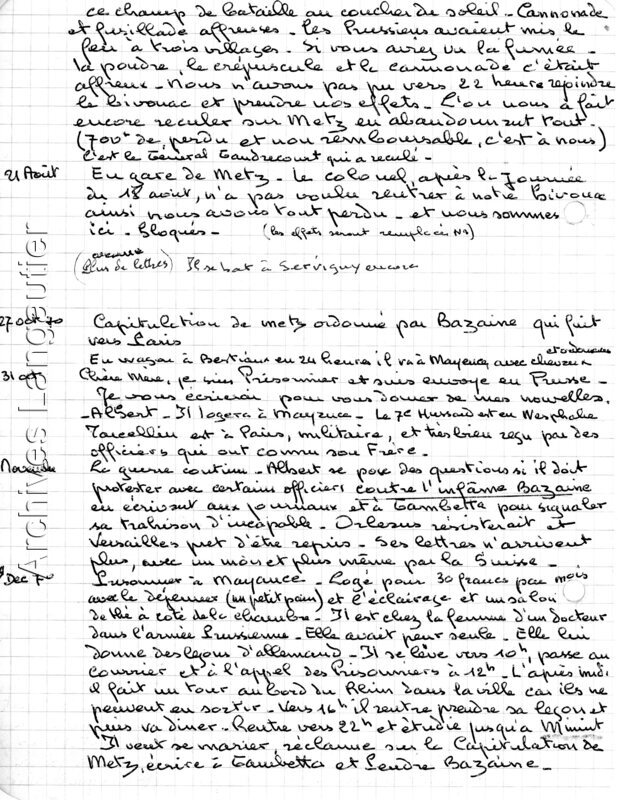 ce champ de bataille au coucher du soleil - Cannonade
et fusillade affreuses - Les Prussiens avaient mis le
feu à trois villages. Si vous aviez vu la fumée -
la poudre, le crépuscule et la cannonade c'était
affreux - Nous n'avons pas pu vers 22 heure rejoindre
le bivouac et prendre nos effets - L'on nous a fait
encore reculer sur Metz en abandonnant tout.
(700f de perdu et non remboursable, c'est à nous)
C'est le Général Gaudrecourt qui a reculé -
21 Août En gare de Metz - le colonel, après la Journée
du 18 août, n'a pas voulu rentrer à notre Bivouac
ainsi nous avons tout perdu - et nous sommes
ici - Bloqués - (les effets seront remplacés)
(Plus de lettres) Il se bat à Servigny encore
27 oct 70 Capitulation de Metz ordonné par Bazaine qui fuit
vers Paris
En wagon à 24 heures il va à Mayence, avec chevaux
31 oct Chère Mère, je suis Prisonnier et suis envoyé en Prusse -
Je vous écrirai pour vous donner de mes nouvelles.
- Albert - Il logera à Mayence - Le 7e Hussard est en Wesphalie
Marcellin est à Paris, militaire, et très bien reçu par des
officiers qui ont connu son Frère -
Novembre La guerre continue - Albert se pose des questions si il doit
protester avec certains officiers contre l'infâme Bazaine
en écrivant aux journaux et à Gambetta pour signaler
sa trahison d'incapable - Orleans résisterait et
Versailles pret d'être repris - Ses lettres n'arrivent
plus, avec un mois et plus même par la Suisse -
Dec 70 Prisonnier à Mayance - Logé pour 30 francs par mois
avec le déjeuner (un petit pain) et l'éclairage et un salon
de thé à côté de la chambre - Il est chez la femme d'un docteur
dans l'armée Prussienne - Elle avait peur seule - Elle lui
donne des leçons d'allemand - Il se lève vers 10h, passe au
courrier et à l'appel des Prisonniers à 12h - L'après midi
il fait un tour au bord du Rhin dans la ville car ils ne
peuvent en sortir - Vers 16h il rentre prendre sa leçon et
puis va diner - Rentre vers 22h et étudie jusqu'a Minuit
Il veut se marier, réclame sur la Capitulation de
Metz, écrire à Gambetta et Pendre Bazaine -
Archives Langautier